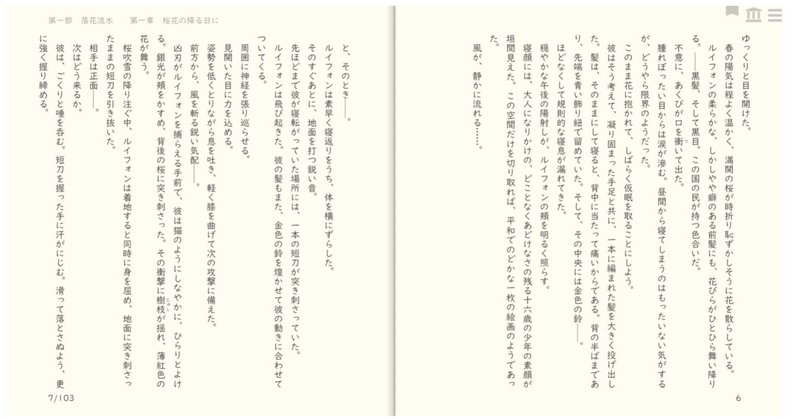 第一部　落花流水　　第一章　桜花の降る日に
ゆっくりと目を開けた。
　春の陽気は程よく温かく、満開の桜が時折り恥ずかしそうに花を散らしている。
　ルイフォンの柔らかな、しかしやや癖のある前髪にも、花びらがひとひら舞い降り
る。――黒髪、そして黒目。この国の民が持つ色合いだ。
　不意に、あくびが口を衝いて出た。
　腫れぼったい目からは涙が滲む。昼間から寝てしまうのはもったいない気がする
が、どうやら限界のようだった。
　このまま花に抱かれて、しばらく仮眠を取ることにしよう。
　彼はそう考えて、凝り固まった手足と共に、一本に編まれた髪を大きく投げ出し
た。髪は、そのままにして寝ると、背中に当たって痛いからである。背の半ばまであ
り、先端を青い飾り紐で留めていた。そして、その中央には金色の鈴――。
　ほどなくして規則的な寝息が漏れてきた。
　穏やかな午後の陽射しが、ルイフォンの頬を明るく照らす。
　寝顔には、大人になりかけの、どことなくあどけなさの残る十六歳の少年の素顔が
垣間見えた。この空間だけを切り取れば、平和でのどかな一枚の絵画のようであっ
た。
　風が、静かに流れる……。
6
　と、そのとき――。
　ルイフォンは素早く寝返りをうち、体を横にずらした。
　そのすぐあとに、地面を打つ鋭い音。
　先ほどまで彼が寝転がっていた場所には、一本の短刀が突き刺さっていた。
　ルイフォンは飛び起きた。彼の髪もまた、金色の鈴を煌かせて彼の動きに合わせて
ついてくる。
　周囲に神経を張り巡らせる。
　見開いた目に力を込める。
　姿勢を低くとりながら息を吐き、軽く膝を曲げて次の攻撃に備えた。
　前方から、風を斬る鋭い気配――。
　凶刃がルイフォンを捕らえる手前で、彼は猫のようにしなやかに、ひらりとよけ
る。銀光が頬をかすめ、背後の桜に突き刺さった。その衝撃に樹枝が揺れ、薄紅色の
花が舞う。
　桜吹雪の降り注ぐ中、ルイフォンは着地すると同時に身を屈め、地面に突き刺さっ
たままの短刀を引き抜いた。
　相手は正面――。
　次はどう来るか。
　彼は、ごくりと唾を呑む。短刀を握った手に汗がにじむ。滑って落とさぬよう、更
に強く握り締める。
7/103